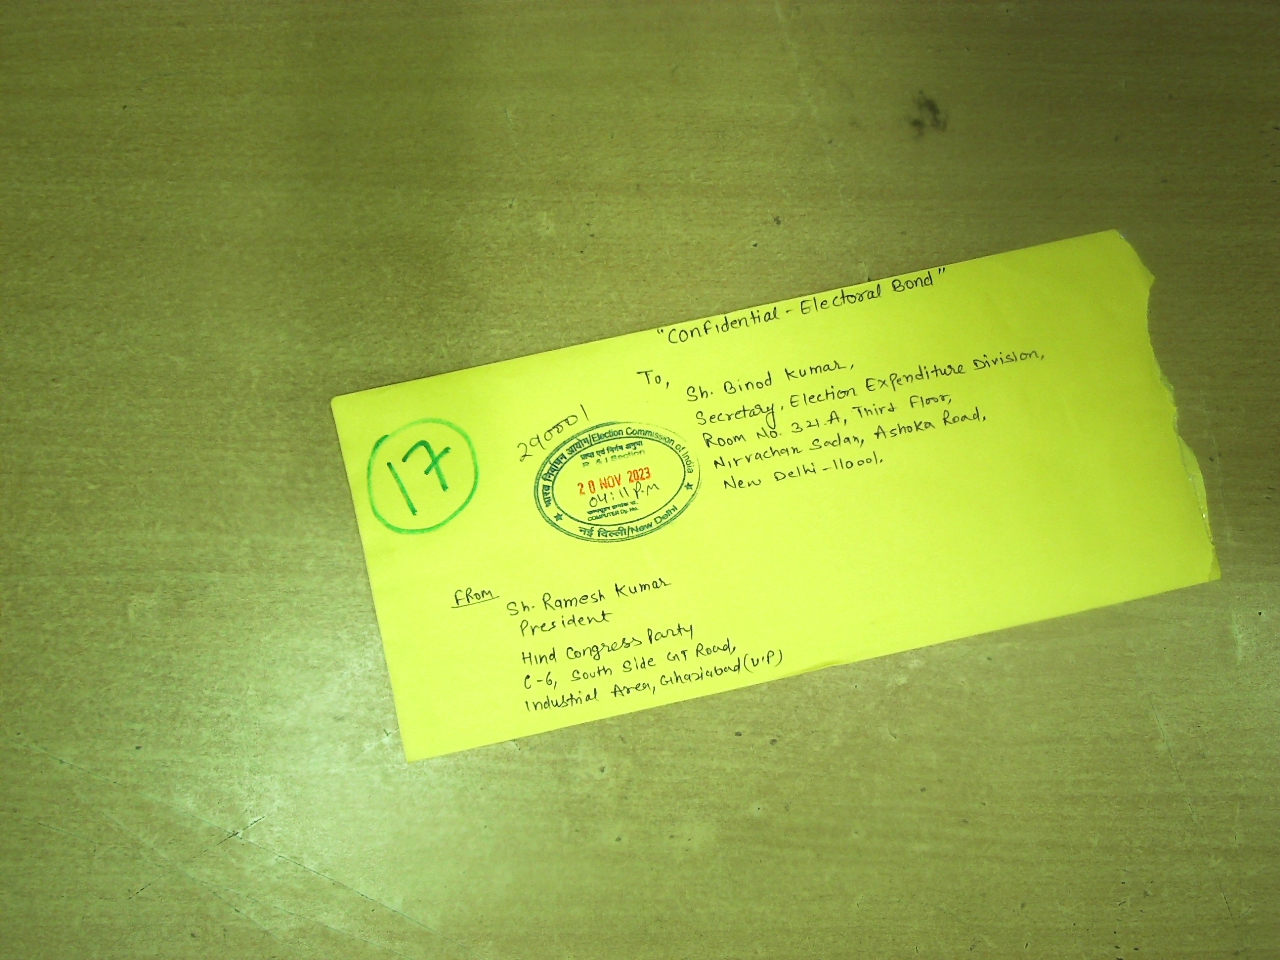 "Confidential - Electoral Bond"
To,
Sh. Binod Kumar,
Secretary, Election Expenditure Division,
Room No. 321.A, Third Floor,
Nirvachan Sadan, Ashoka Road,
New Delhi - 110001.
17
290001
भारत निर्वाचन आयोग/Election Commission of India
R & I Section
20 NOV 2023
04:11 P.M
COMPUTER Dy. No.
नई दिल्ली/New Delhi
FROM
Sh. Ramesh Kumar
President
Hind Congress Party
C-6, South Side GT Road,
Industrial Area, Ghaziabad (U.P)